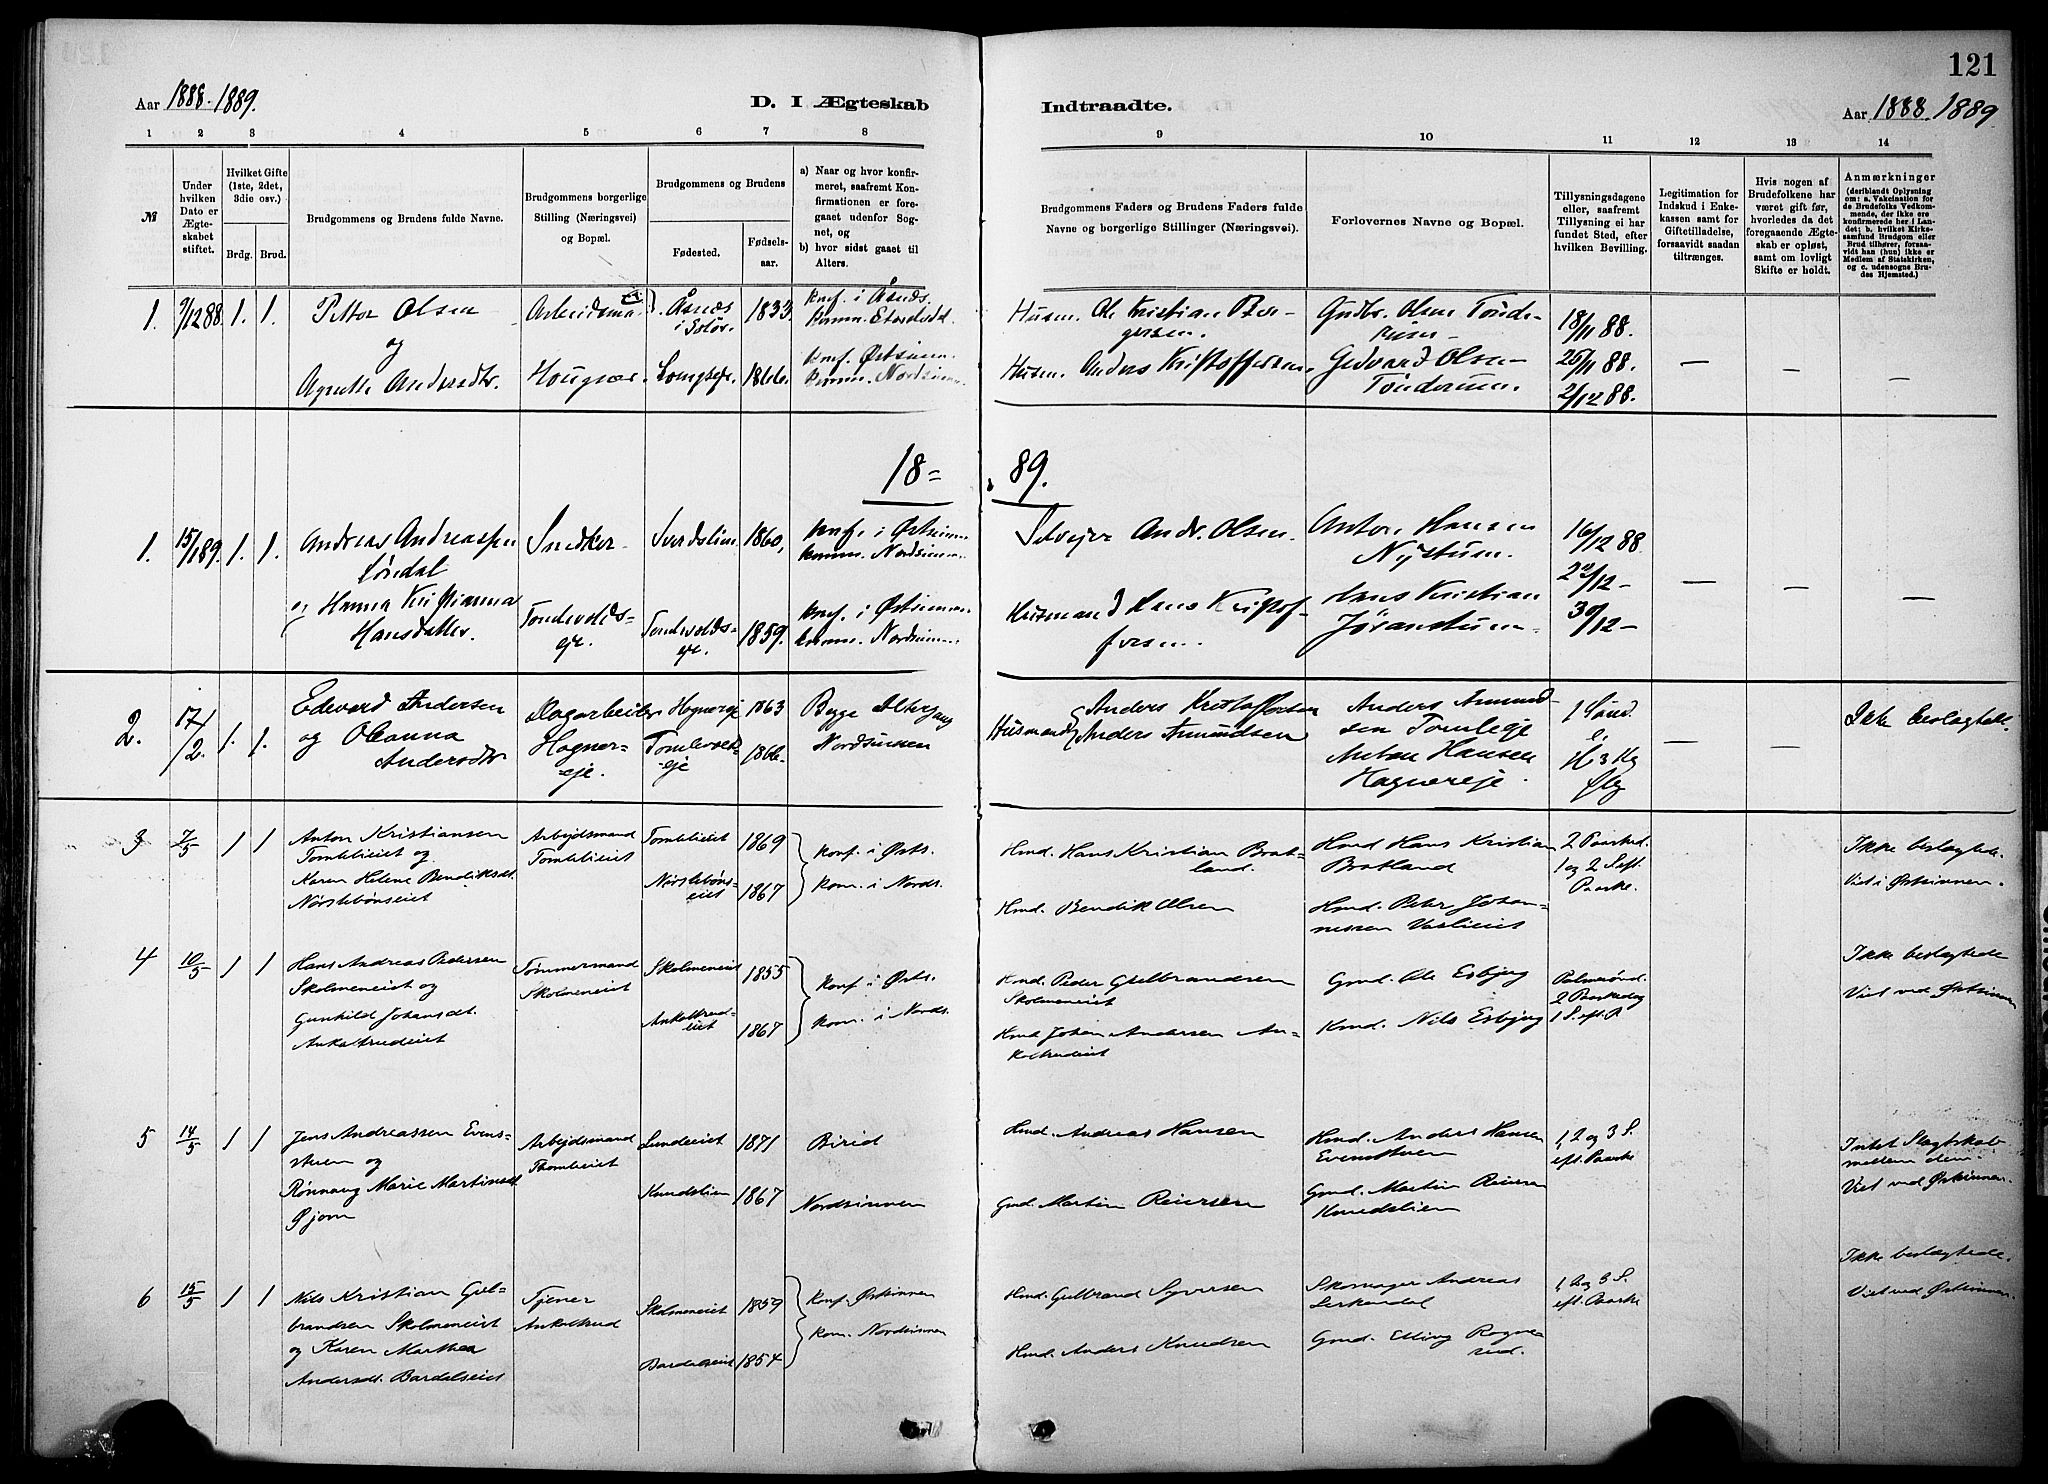 121
Aar 1888-1889.
D. I Ægteskab
Indtraadte.
Aar 1888. 1889
1 2 3 4 5 6 7 8
9 10 11 12 13 14
№
Under hvilken Dato er Ægteskabet stiftet.
Hvilket Gifte (1ste, 2det, 3die osv.)
Brdg. Brud.
Brudgommens og Brudens fulde Navne.
Brudgommens borgerlige Stilling (Næringsvei) og Bopæl.
Brudgommens og Brudens
Fødested.
Fødselsaar.
a) Naar og hvor konfirmeret, saafremt Konfirmationen er foregaaet udenfor Sognet, og
b) hvor sidst gaaet til Alters.
Brudgommens Faders og Brudens Faders fulde Navne og borgerlige Stillinger (Næringsvei).
Forlovernes Navne og Bopæl.
Tillysningsdagene eller, saafremt Tillysning ei har fundet Sted, efter hvilken Bevilling.
Legitimation for Indskud i Enkekassen samt for Giftetilladelse, forsaavidt saadan tiltrænges.
Hvis nogen af Brudefolkene har været gift før, hvorledes da det foregaaende Ægteskab er opløst, samt om lovligt Skifte er holdt.
Anmærkninger
(deriblandt Oplysning om: a. Vakcination for de Brudefolks Vedkommende, der ikke ere konfirmerede her i Landet; b. hvilket Kirkesamfund Brudgom eller Brud tilhører, forsaavidt han (hun) ikke er Medlem af Statskirken, og c. udensogns Brudes Hjemsted.)
1. 9/12 88. 1. 1. Petter Olsen
og
Agnette Andersdtr.
Arbeidsma
Hougner
Åsnes i Solør. 1833.
1866.
Konf. i Åsnes.
Komm. Etnedal.
Konf. Østsinn.
Komm. Nordsinn.
Husm. Ole Kristian Bergersen.
Husm. Anders Kristoffersen
Gudbr. Olsen
Gedvard Olsen
18/11 88.
25/11 88.
2/12 88.
18 = 89.
1. 15/1 89. 1. 1. Andreas Andreassen
Søndal
og Hanna Kristianna
Hansdatter.
Snedker
Tondevoldseje.
Sverdslien 1860.
Tondevoldseje. 1859.
Konf. i Østsinn.
Komm. Nordsinn.
Konf. i Østsinnen
Komm. Nordsinn.
Selvejer Andr. Olsen.
Husmand Hans Kristoffersen.
Anton Hansen
Nystuen.
Hans Kristian
Jøranstuen
16/12 88.
30/12 -
2. 17/2. 1. 1. Edevard Andersen
og Oleanna
Andersdtr
Dagarbeider
Hogner-
eje.
Hognereje 1863
1866.
Begge Altergang
Nordsinnen
Husmand Anders Kristoffersen
Anders Amundsen
Anders Amundsen
Anton Hansen
Hagnereje.
Ikke beslægtede.
3 7/5 1 1 Anton Kristiansen
Tomleeiet og
Karen Helene Bendiksdt.
Nørstebønseiet
Arbejdsmand
Tomleeiet
Tomleeiet 1869
Nørstebønseiet 1867
Konf. i Østs.
Kom. i Nords.
Hmd. Hans Kristian Bratland.
Hmd. Bendik Olsen
Hmd Hans Kristian
Bratland
Hmd. Peter Johannessen
2 Paasked.
1 og 2 S. eft.
Paaske.
Ikke beslægtede.
Viet i Østsinnen.
4 10/5 1 1 Hans Andreas Pedersen
Skolmeneiet og
Gunhild Johansdt.
Tømmermand
Skolmeneiet
Skolmeneiet 1855
1867
Konf. i Østs.
Kom. i Nords.
Hmd. Peder Gulbrandsen
Skolmeneiet
Hmd Johan Andersen
Gmd. Ole Esbjug
Kmd. Nils Esbjug
Palmesønd.
2 Paaskedag
1 S. eft. P
Ikke beslægtede
Viet ved Østsinnen
5 14/5 1 1 Jens Andreassen Evenstuen og
Rønnaug Marie Martinsdt
Arbejdsmand
Tomleeiet
Lundeeiet 1871
Knudslien 1867
Birid
Nordsinnen
Hmd. Andreas Hansen
Gmd. Martin Reiersen
Hmd. Anders Hansen
Evenstuen
Gmd. Martin Reiersen
Knudslien
1, 2 og 3 S.
eft. Paaske
Intet Slægtskab
mellem dem.
Viet ved Østsinnen.
6 15/5 1 1 Nils Kristian Gulbrandsen Skolmeneiet
og Karen Marthea
Andersdt. Bardelseiet
Tjener
Ankeltrud
Skolmeneiet 1859
Bardelseiet 1854
Konf. Østsinnen
Kom. Nordsinnen
Hmd. Gulbrand Syversen
Hmd. Anders Knudsen
Skomager Andreas
Lerkendal
Gmd. Elling Rognerud.
1, 2 og 3 S.
eft. Paaske
Ikke beslægtede.
Viet ved Østsinnen.